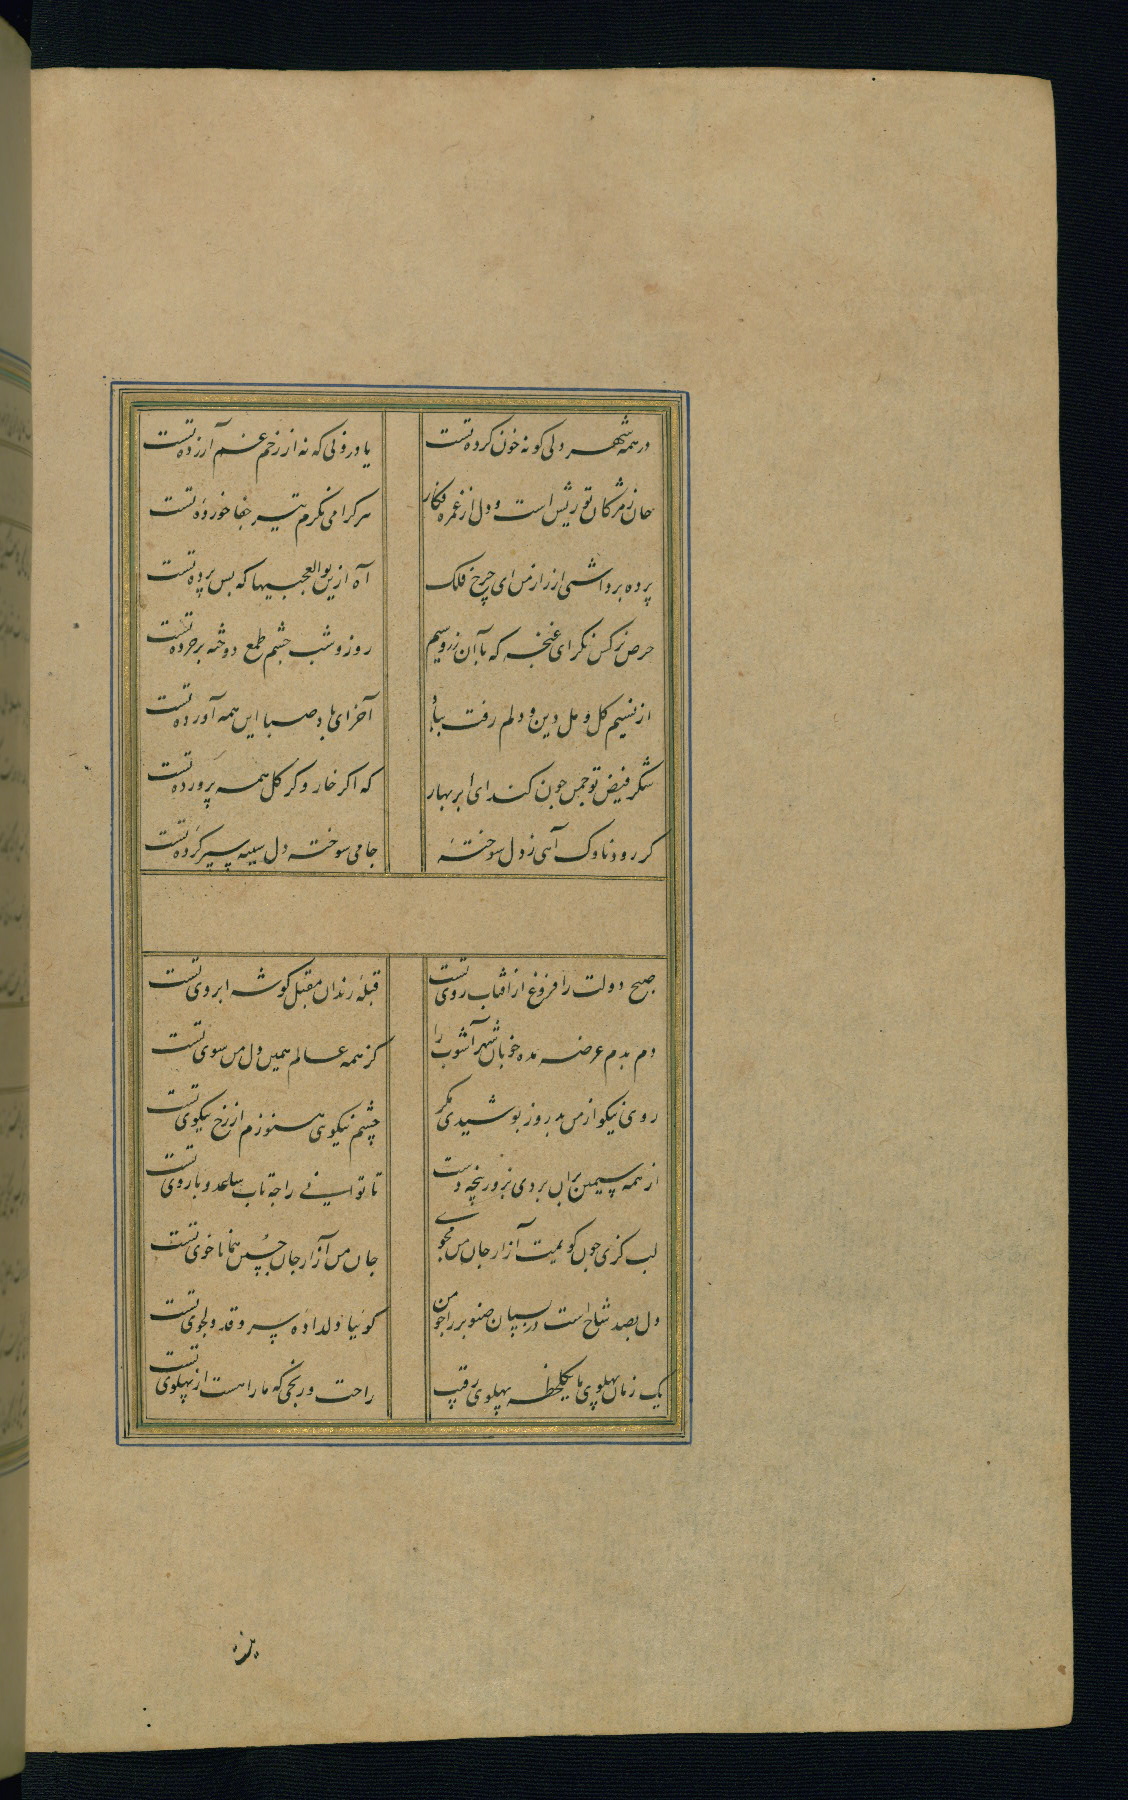 در همه شهر دلی کو نه خون کرده تست
یا درونی که نه از زخم غم آزرده تست
جان ز مژگان تو ریش است و دل از غمزه فکار
هر کرا می نکرم تیر جفا خورده تست
پرده برداشتی از راز من ای چرخ فلک
آه ازین بوالعجبیها که پس پرده تست
حرص نرکس نکر ای غنچه که با آن زر و سیم
روز و شب چشم طمع دوخته بر خرده تست
از نسیم کل و مل دین و دلم رفت بباد
آخر ای باد صبا این همه آورده تست
شکر فیض تو چمن چون کند ای ابر بهار
که اکر خار و کر کل همه پرورده تست
کر رود ناوک آهی ز دل سوخته
جامی سوخته دل سینه سپر کرده تست
صبح دولت را فروغ از آفتاب روی تست
قبله رندان مقبل کوشه ابروی تست
دم بدم عرضه مده خوبان شهر آشوب را
کز همه عالم همین دل من سوی تست
روی نیکو از من بد روز پوشیدی مکر
چشم نیکوی هنوزم از رخ نیکوی تست
از همه سیمین بران بردی بزور پنجه دست
تا توانی را چه تاب ساعد و بازوی تست
لب کزی چون کویمت آزار جان من مجوی
جان من آزار جان جستن همانا خوی تست
دل بصد شاخ است در بستان صنوبر را چو من
کوئیا دلداده سرو قد دلجوی تست
یک زمان پهلوی ما یکلحظه پهلوی رقیب
راحت و رنجی که ما را هست از پهلوی تست